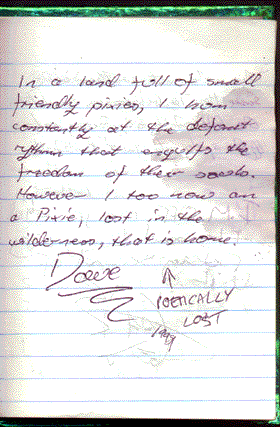 In a land full of small
friendly pixies, I
constantly at the
rythm that engulfs the
freedom of their souls.
However I too now am
a Pixie, lost in the
wilderness, that is home.
Dave
↑
POETICALLY
LOST
1999